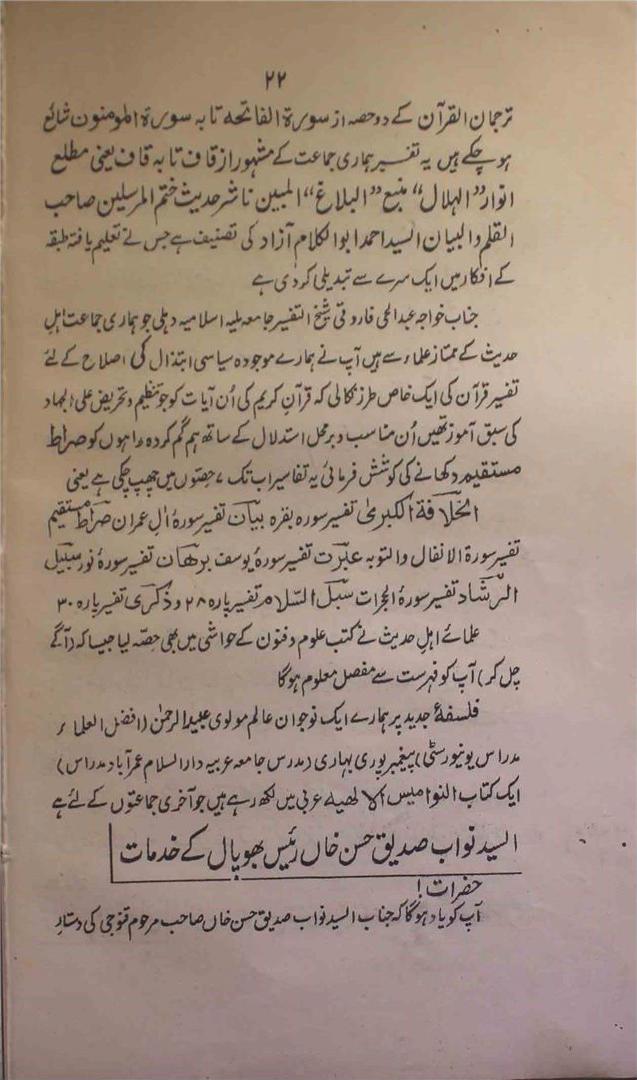 ۲۲
ترجمان القرآن کے دو حصہ از سورۃ الفاتحہ تا بہ سورۃ المومنون شائع
ہو چکے ہیں یہ تفسیر ہماری جماعت کے مشہور از قاف تا بہ قاف یعنی مطلع
انوار "الہلال" منبع "البلاغ" المبین ناشر حدیث ختم المرسلین صاحب
القلم والبیان السید احمد ابوالکلام آزاد کی تصنیف ہے جس نے تعلیم یافتہ طبقہ
کے افکار میں ایک سرے سے تبدیلی کر دی ہے
جناب خواجہ عبدالحی فاروقی شیخ التفسیر جامعہ ملیہ اسلامیہ دہلی جو ہماری جماعت اہل
حدیث کے ممتاز علماء سے ہیں آپ نے ہمارے موجودہ سیاسی ابتذال کی اصلاح کے لئے
تفسیر قرآن کی ایک خاص طرز نکالی کہ قرآن کریم کی اُن آیات کو جو تنظیم و تحریض علی الجہاد
کی سبق آموز تھیں اُن مناسب و برمحل استدلال کے ساتھ ہم گم کردہ راہوں کو صراط
مستقیم دکھانے کی کوشش فرمائی یہ تفاسیر اب تک ۷ حصّوں میں چھپ چکی ہے یعنی
الخلافۃ الکبریٰ تفسیر سورہ بقرہ بیان تفسیر سورۂ اٰل عمران صراط مستقیم
تفسیر سورۃ الانفال والتوبہ عبرت تفسیر سورۂ یوسف برھان تفسیر سورۂ نور سبیل
الرشاد تفسیر سورۂ الحجرات سبل السّلام تفسیر پارہ ۲۸ و ذکریٰ تفسیر پارہ ۳۰
علمائے اہل حدیث نے کتب علوم و فنون کے حواشی میں بھی حصّہ لیا جیسا کہ (آگے
چل کر) آپ کو فہرست سے مفصل معلوم ہوگا
فلسفۂ جدید پر ہمارے ایک نوجوان عالم مولوی عبیدالرحمٰن (افضل العلماء
مدراس یونیورسٹی) پیغمبر پوری بہاری (مدرس جامعہ عربیہ دارالسلام عمرآباد مدراس)
ایک کتاب النوامیس الالھیہ عربی میں لکھ رہے ہیں جو آخری جماعتوں کے لئے ہے
السید نواب صدیق حسن خاں رئیس بھوپال کے خدمات
حضرات!
آپ کو یاد ہوگا کہ جناب السید نواب صدیق حسن خاں صاحب مرحوم قنوجی کی دستارِ